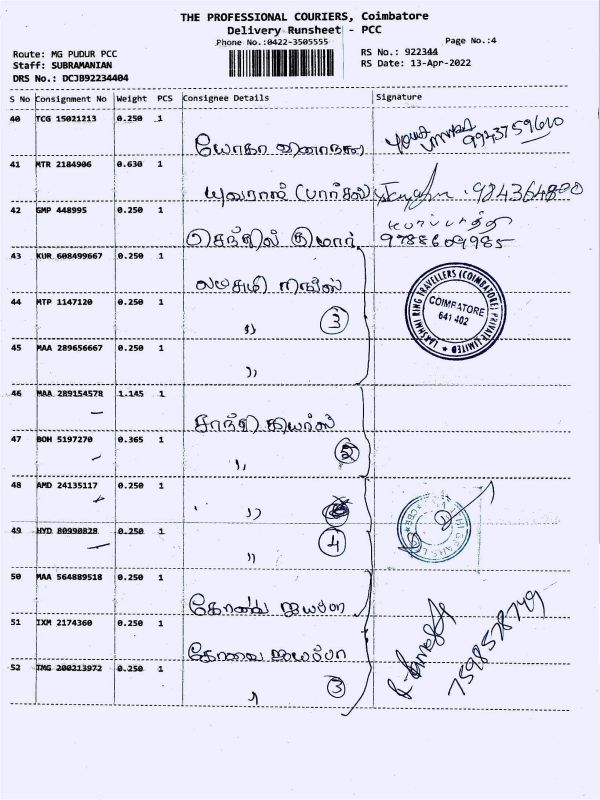 THE PROFESSIONAL COURIERS, Coimbatore
Delivery Runsheet - PCC
Phone No.:0422-3505555
Page No.:4
Route: MG PUDUR PCC
Staff: SUBRAMANIAN
DRS No.: DCJB92234404
RS No.: 922344
RS Date: 13-Apr-2022
S No Consignment No Weight PCS Consignee Details Signature
40 TCG 15021213 0.250 1
யோகா 9943759610
41 MTR 2184906 0.630 1
யுவராஜ் (பார்சல்)
42 GMP 448995 0.250 1
செந்தில் குமார் 9788609985
43 KUR 608499667 0.250 1
லட்சுமி
44 MTP 1147120 0.250 1
,, 3
45 MAA 289656667 0.250 1
,,
LAKSHMI RING TRAVELLERS (COIMBATORE) PRIVATE LIMITED
COIMBATORE
641 402
46 MAA 289154578 1.145 1
சாந்தி கியர்ஸ்
47 BOH 5197270 0.365 1
,, 2
48 AMD 24135117 0.250 1
,,
49 HYD 80990828 0.250 1
,, 4
50 MAA 564889518 0.250 1
கோவை
51 IXM 2174360 0.250 1
கோவை
52 TMG 200213972 0.250 1
3
7598578749